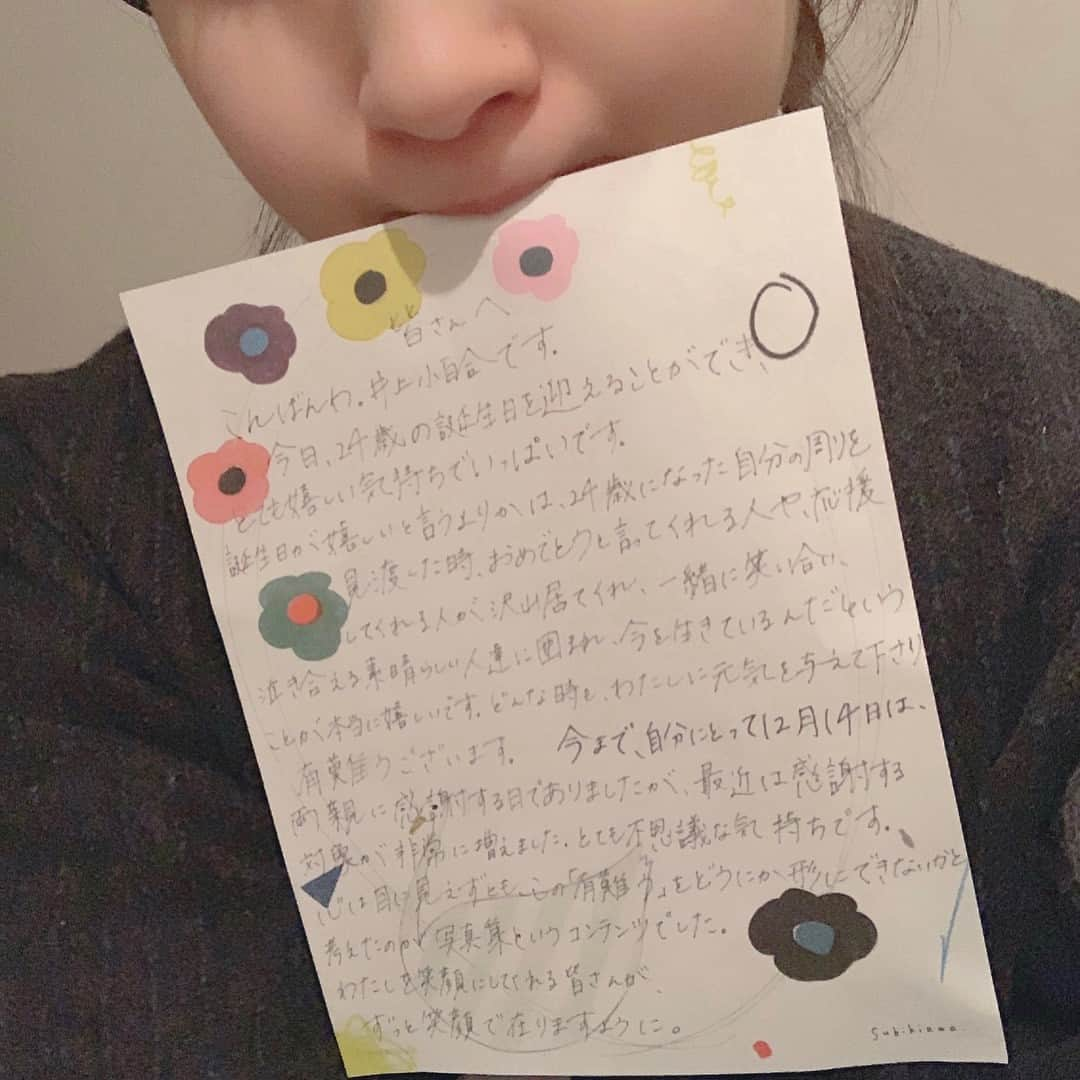 皆さんへ
こんばんわ。井上小百合です。
今日、24歳の誕生日を迎えることができ、
とても嬉しい気持ちでいっぱいです。
誕生日が嬉しいと言うよりかは、24歳になった自分の周りを
見渡した時、おめでとうと言ってくれる人や、応援
してくれる人が沢山居てくれ、一緒に笑い合い、
泣き合える素晴らしい人達に囲まれ、今を生きているんだという
ことが本当に嬉しいです。どんな時も、わたしに元気を与えて下さり
有難うございます。 今まで、自分にとって12月14日は、
両親に感謝する日でありましたが、最近は感謝する
対象が非常に増えました。とても不思議な気持ちです。
心は目に見えずとも、この「有難う」をどうにか形にできないかと
考えたのが写真集というコンテンツでした。
わたしを笑顔にしてくれる皆さんが、
ずっと笑顔で在りますように。